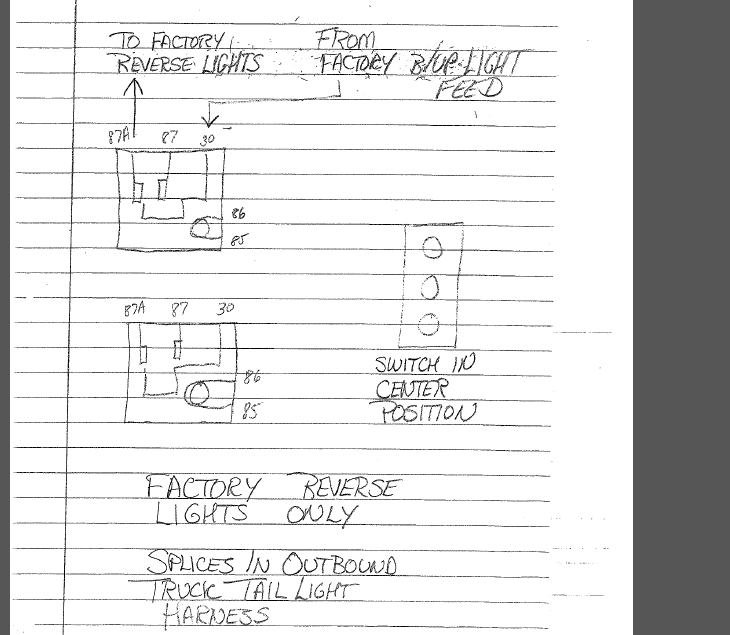 TO FACTORY
REVERSE LIGHTS
FROM
FACTORY B/UP LIGHT
FEED
87A 87 30
86
85
87A 87 30
86
85
SWITCH IN
CENTER
POSITION
FACTORY REVERSE
LIGHTS ONLY
SPLICES IN OUTBOUND
TRUCK TAIL LIGHT
HARNESS